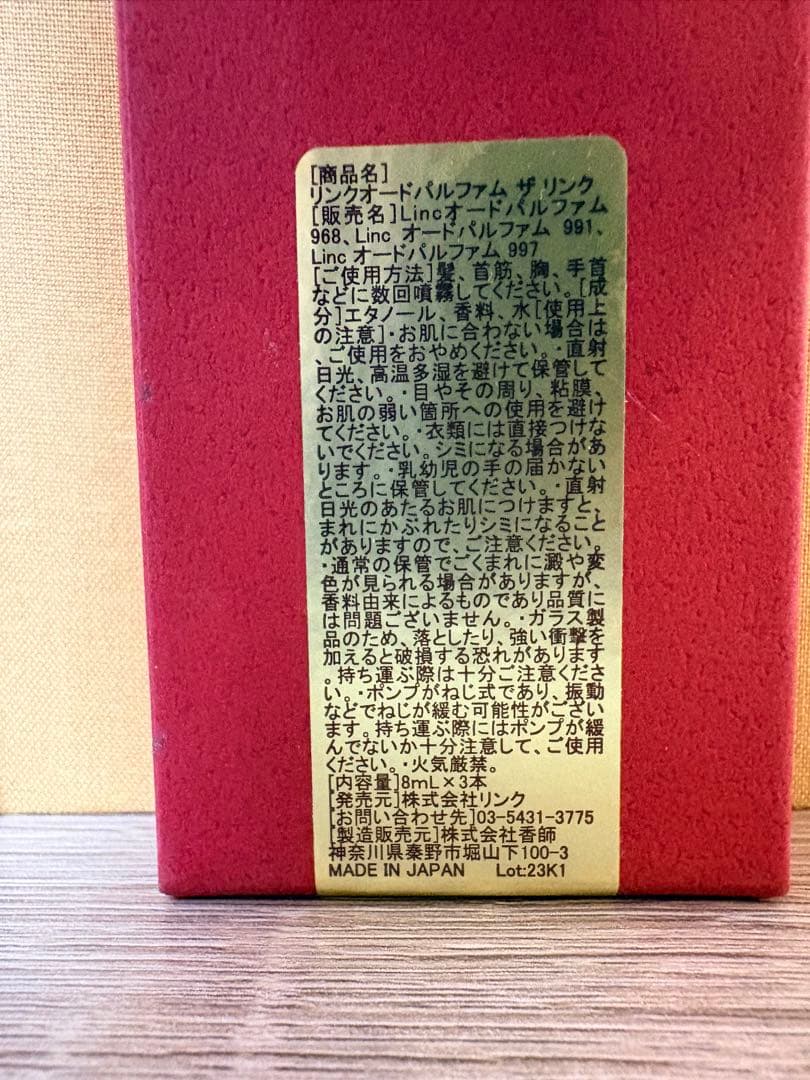 [商品名]
リンクオードパルファム ザ リンク
[販売名]Lincオードパルファム
968、Linc オードパルファム 991、
Linc オードパルファム 997
[ご使用方法]髪、首筋、胸、手首
などに数回噴霧してください。[成
分]エタノール、香料、水[使用上
の注意]・お肌に合わない場合は
、ご使用をおやめください。・直射
日光、高温多湿を避けて保管して
ください。・目やその周り、粘膜、
お肌の弱い箇所への使用を避け
てください。・衣類には直接つけな
いでください。シミになる場合があ
ります。・乳幼児の手の届かない
ところに保管してください。・直射
日光のあたるお肌につけますと、
まれにかぶれたりシミになること
がありますので、ご注意ください。
・通常の保管でごくまれに澱や変
色が見られる場合がありますが、
香料由来によるものであり品質に
は問題ございません。・ガラス製
品のため、落としたり、強い衝撃を
加えると破損する恐れがあります
。持ち運ぶ際は十分ご注意くださ
い。・ポンプがねじ式であり、振動
などでねじが緩む可能性がござい
ます。持ち運ぶ際にはポンプが緩
んでないか十分注意して、ご使用
ください。・火気厳禁。
[内容量]8mL×3本
[発売元]株式会社リンク
[お問い合わせ先]03-5431-3775
[製造販売元]株式会社香師
神奈川県秦野市堀山下100-3
MADE IN JAPAN Lot:23K1